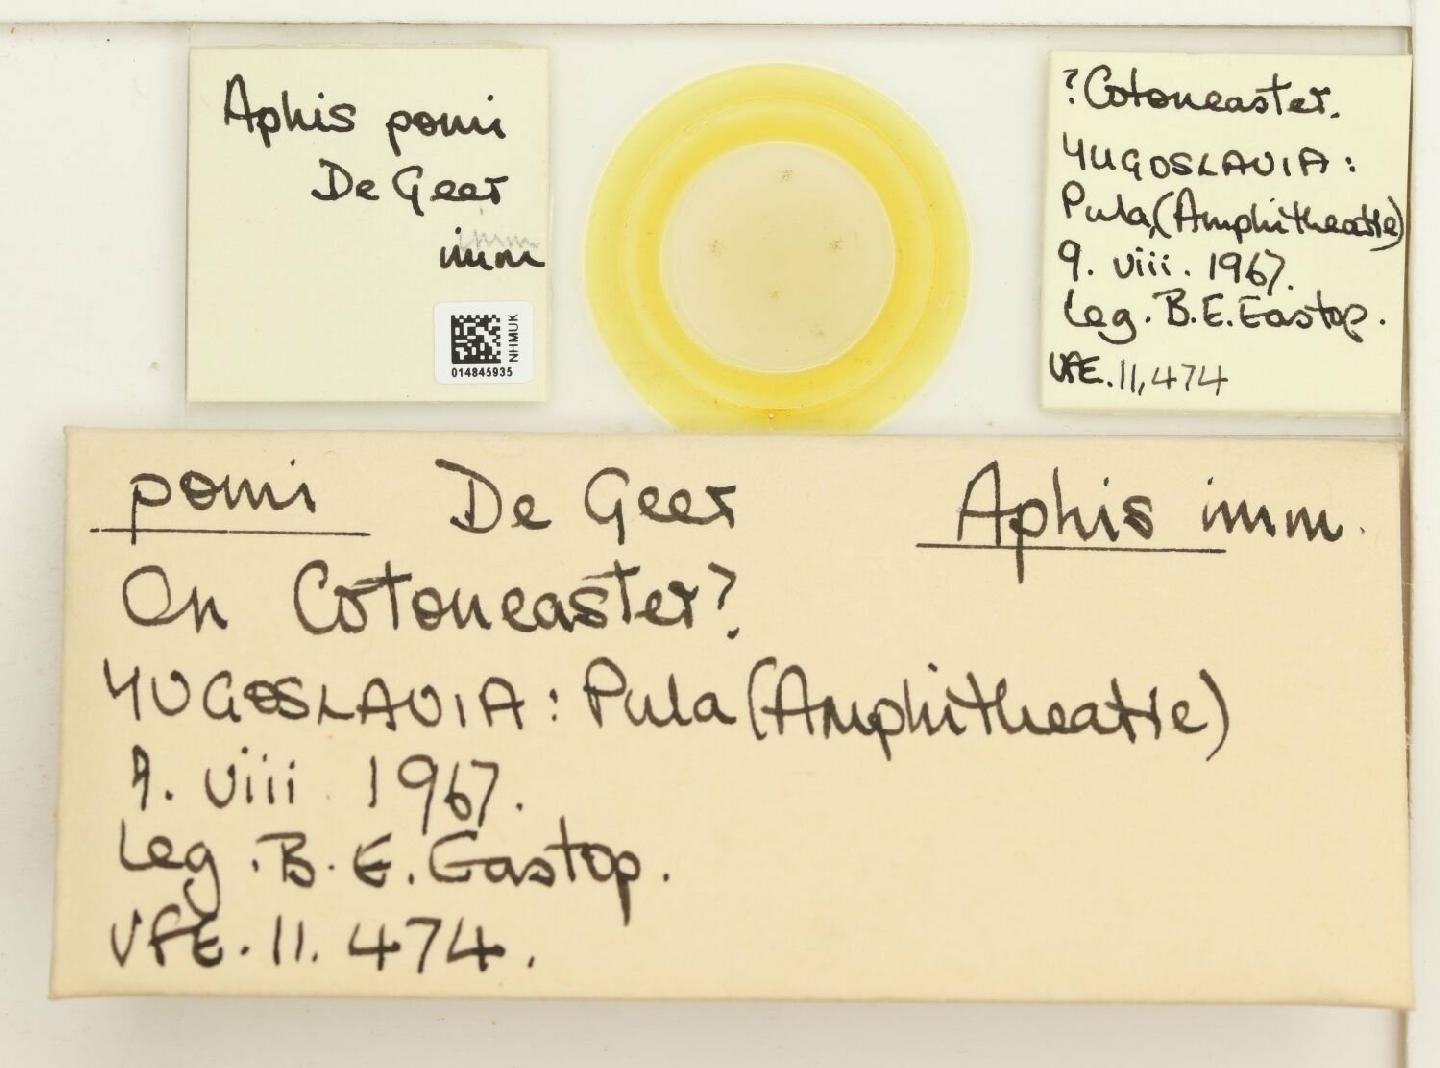 Aphis pomi
De Geer
imm
imm
NHMUK
014845935
?Cotoneaster.
YUGOSLAVIA:
Pula, (Amphitheatre)
9. viii. 1967.
Leg. B.E. Eastop.
VFE. 11,474
pomi De Geer Aphis imm.
On Cotoneaster?
YUGOSLAVIA: Pula (Amphitheatre)
9. viii 1967.
Leg. B. E. Eastop.
VFE. 11. 474.